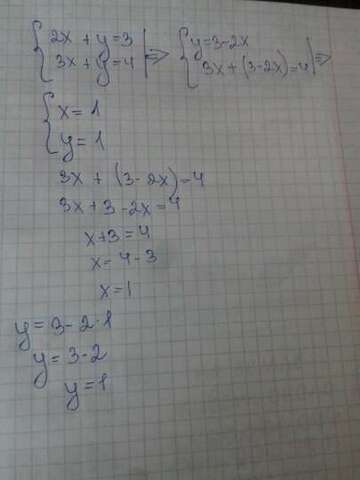 { 2x + y = 3 | => { y = 3 - 2x
{ 3x + y = 4 | => { 3x + (3 - 2x) = 4 | =>
{ x = 1
{ y = 1
3x + (3 - 2x) = 4
3x + 3 - 2x = 4
x + 3 = 4
x = 4 - 3
x = 1
y = 3 - 2·1
y = 3 - 2
y = 1